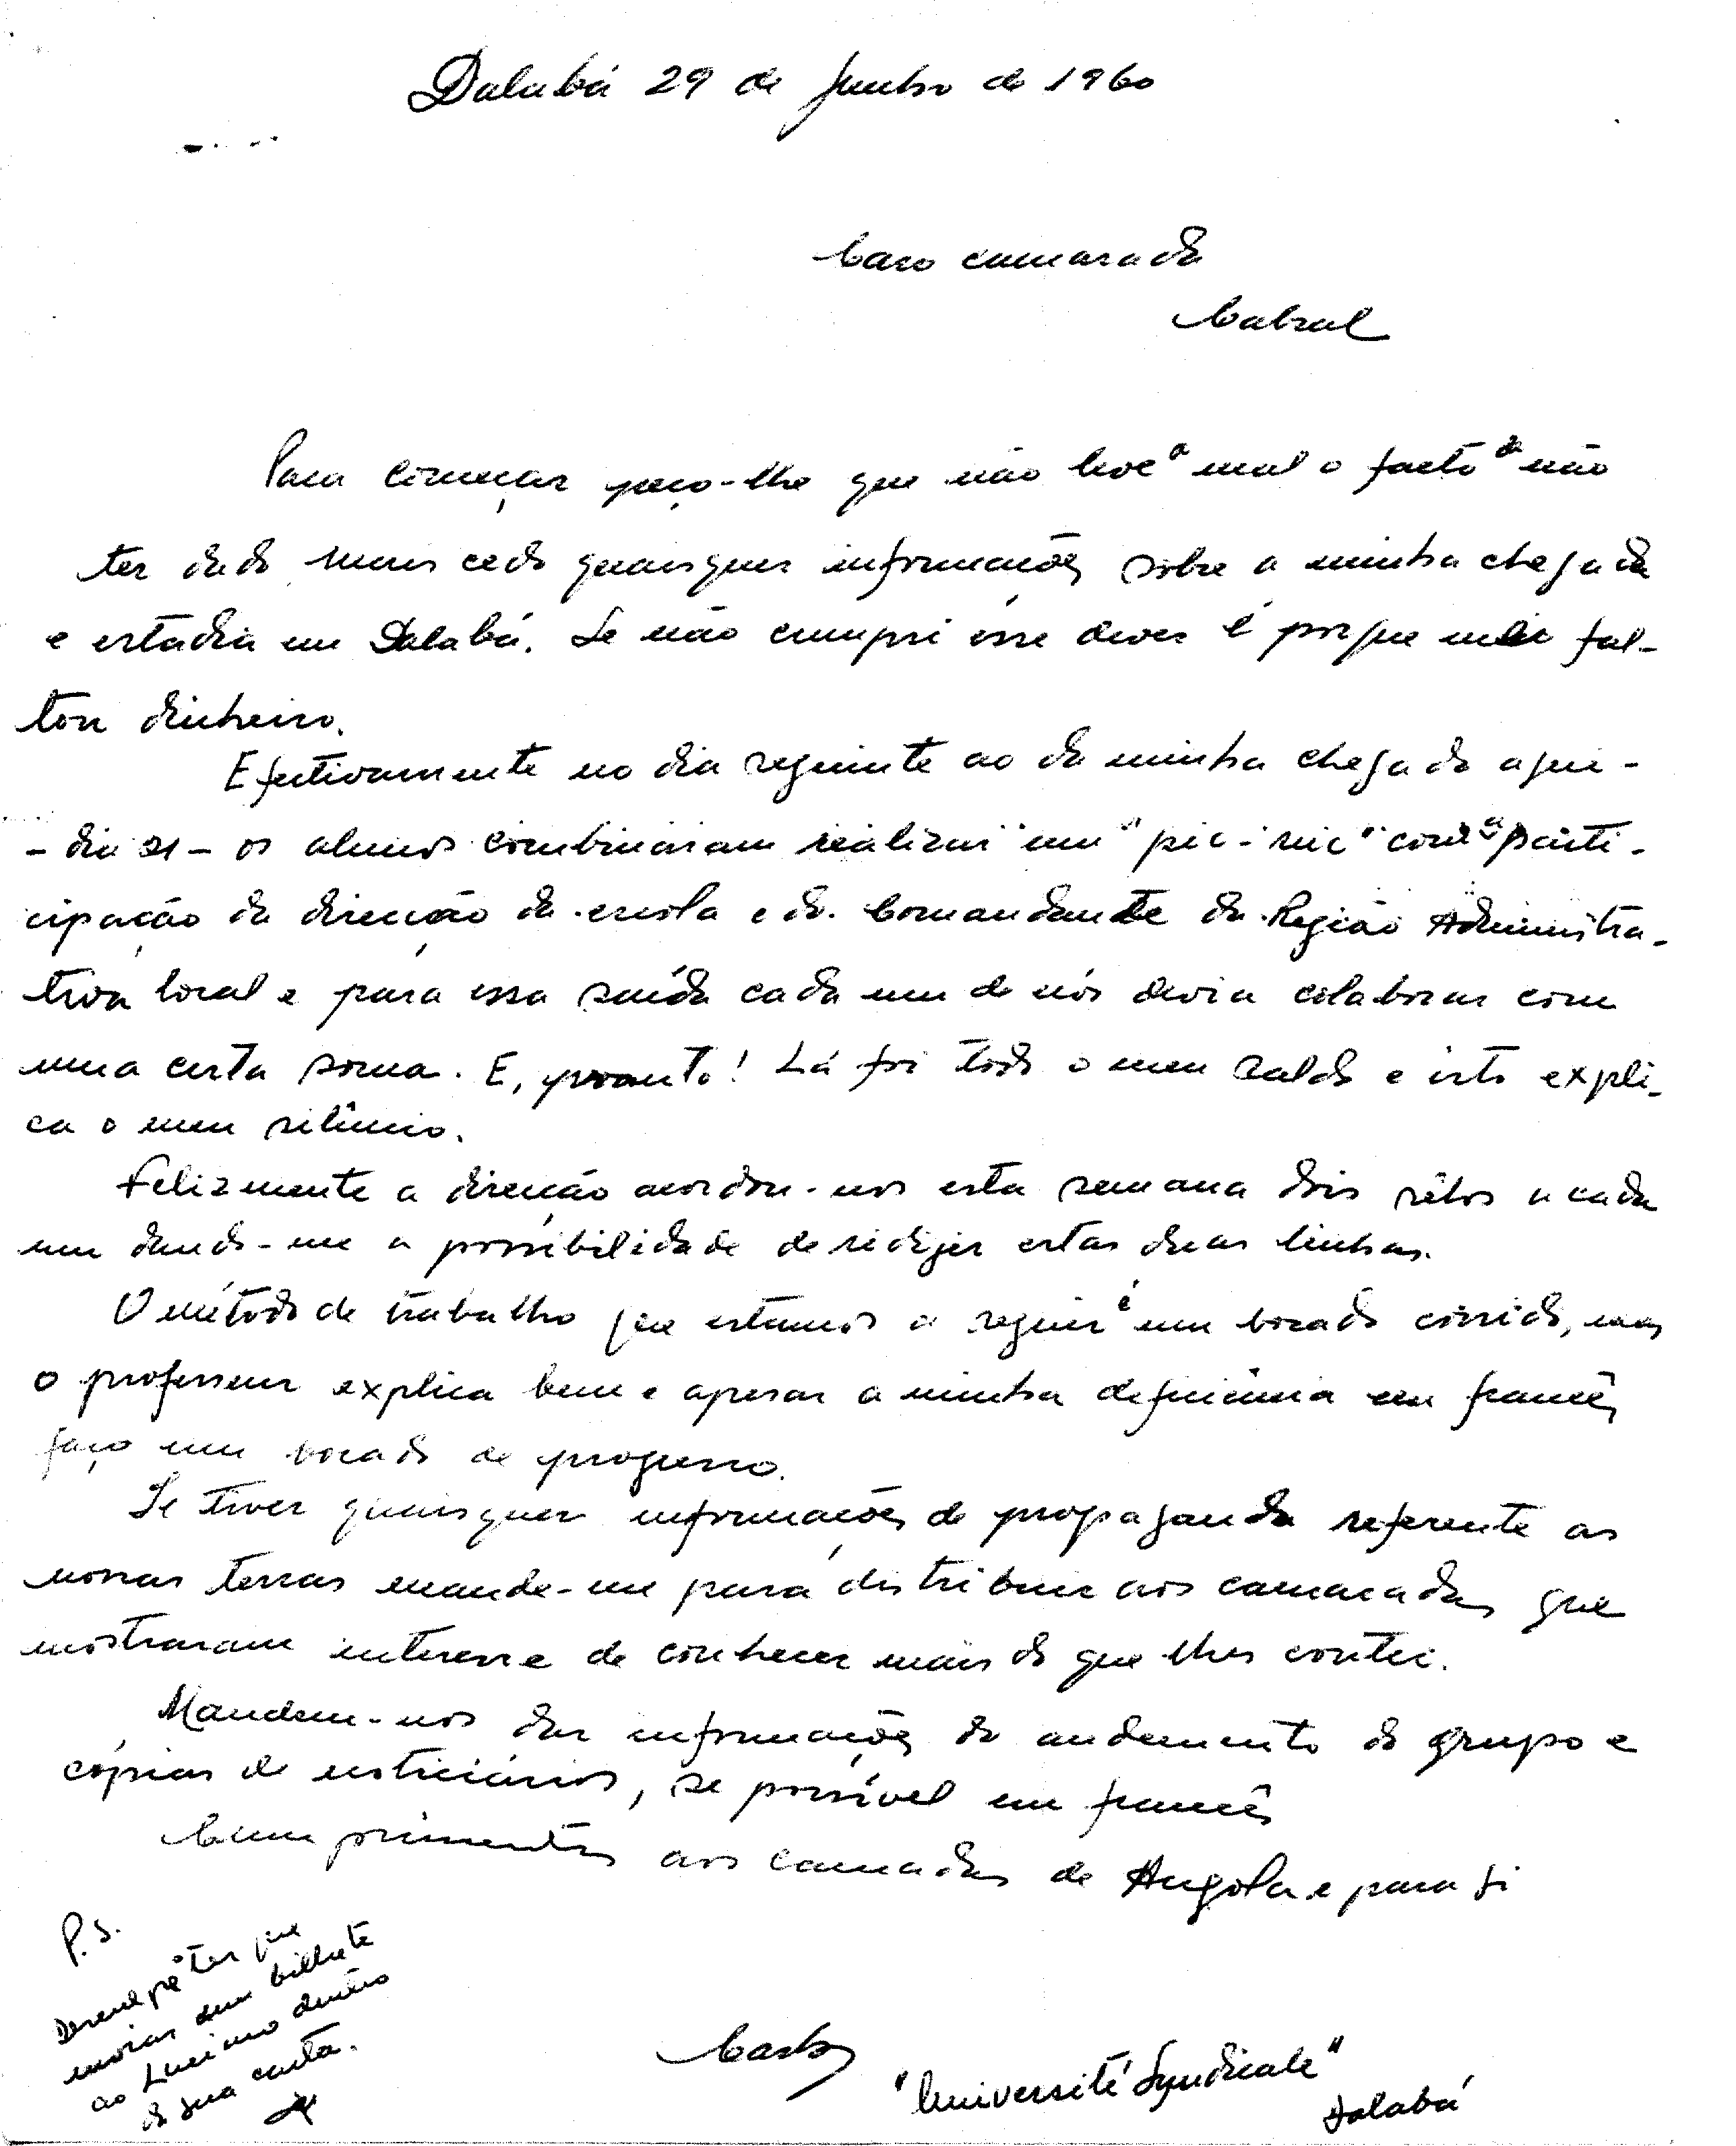 Dalabá 29 de Junho de 1960
Caro camarada
Cabral
Para começar peço-lhe que não leve a mal o facto de não
ter dado mais cedo quaisquer informações sobre a minha chegada
e estadia em Dalabá. Se não cumpri êsse dever é porque me fal-
tou dinheiro.
Efectivamente no dia seguinte ao da minha chegada aqui -
- dia 21 - os alunos combinaram realizar um "pic-nic" com a parti-
cipação da direcção da escola e do Comandante da Região Administra-
tiva local e para essa saída cada um de nós devia colaborar com
uma certa soma. E, pronto! Lá foi todo o meu saldo e isto expli-
ca o meu silêncio.
Felizmente a direcção acordou-nos esta semana dois sêlos a cada
um dando-me a possibilidade de redigir estas duas linhas.
O método de trabalho que estamos a seguir é um bocado corrido, mas
o professeur explica bem e apesar a minha deficiência em francês
faço um bocado de progresso.
Se tiver quaisquer informações de propaganda referente as
nossas terras mande-me para distribuir aos camaradas que
mostraram interesse de conhecer mais do que lhes contei.
Mandem-nos dar informações do andamento do grupo e
cópias de noticiários, se possível em francês
Cumprimentos aos camadas de Angola e para ti
Carlos
"Université Syndicale"
Dalabá
P.S.
Desculpe ter que
enviar um bilhete
ao Luciano dentro
da sua carta.